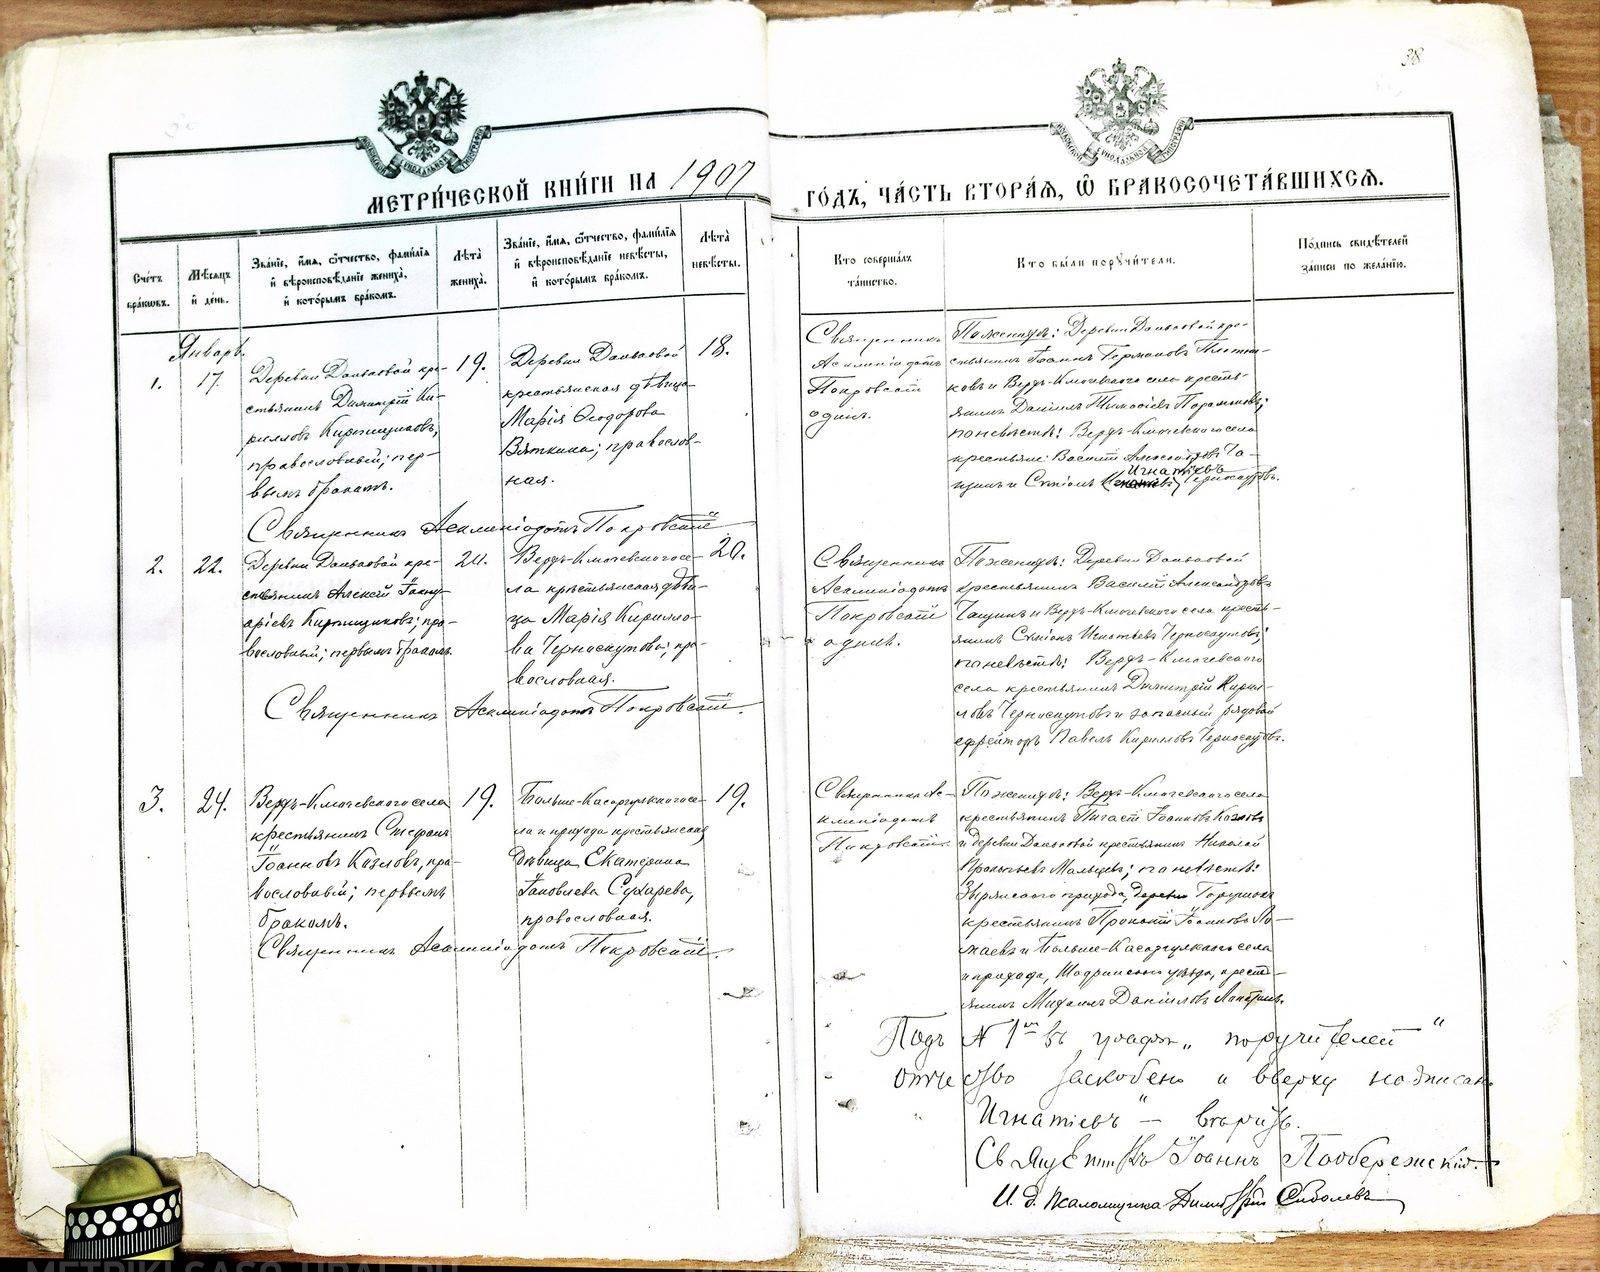 38
МЕТРИ́ЧЕСКОЙ КНИ́ГИ НА 1907
ГО́ДЪ, ЧА́СТЬ ВТОРА́Ѧ, Ѿ БРАКОСОЧЕТА́ВШИХСѦ.
Сче́тъ бра́кѡвъ.
Мѣ́сѧцъ и҆ де́нь.
Зва́нїе, и҆́мѧ, ѻ҆́тчество, фами́лїѧ и҆ вѣроисповѣ́данїе жениха̀, и҆ кото́рымъ бра́комъ.
Лѣ́та жениха̀.
Зва́нїе, и҆́мѧ, ѻ҆́тчество, фами́лїѧ и҆ вѣроисповѣ́данїе невѣ́сты, и҆ кото́рымъ бра́комъ.
Лѣ́та невѣ́сты.
Кто̀ соверша́лъ та́инство.
Кто̀ бы́ли порꙋчи́тели.
По́дпись свидѣ́телей за́писи по жела́нїю.
Январь.
1.
17.
Деревни кре-
стьянинъ Димитрій Ки-
рилловъ Кирпищиковъ,
православный; пер-
вымъ бракомъ.
19.
Деревни
крестьянская дѣвица
Марія Ѳеодорова
Вяткина; православ-
ная.
18.
Священникъ
Асклипіодотъ
Покровскій
одинъ.
По женихѣ: Деревни кре-
стьянинъ Іоаннъ Германовъ
ковъ и Верхъ-Ключевского села кресть-
янинъ Даніилъ
по невѣстѣ: Верхъ-Ключевского села
крестьяне: Василій Александровъ Та-
щинъ и Симіонъ Игнатіевъ Черноскутовъ.
Священникъ Асклипіодотъ Покровскій
2.
22.
Деревни кре-
стьянинъ Алексій Іанну-
аріевъ Кирпищиковъ; пра-
вославный; первымъ бракомъ.
Верхъ-Ключевского се-
ла крестьянская дѣви-
ца Марія Кирилло-
ва Черноскутова; пра-
вославная.
20.
Священникъ
Асклипіодотъ
Покровскій
одинъ.
По женихѣ: Деревни
крестьянинъ Василій Александровъ
Тащинъ и Верхъ-Ключевского села кресть-
янинъ Симіонъ Игнатіевъ Черноскутовъ;
по невѣстѣ: Верхъ-Ключевского
села крестьянинъ Димитрій Кирил-
ловъ Черноскутовъ и запасный рядовой
ефрейторъ Павелъ Кирилловъ Черноскутовъ.
Священникъ Асклипіодотъ Покровскій.
3.
24.
Верхъ-Ключевского села
крестьянинъ Стефанъ
Іоанновъ Козловъ, пра-
вославный; первымъ
бракомъ.
19.
Больше-Касаргульского се-
ла и прихода крестьянская
дѣвица Екатерина
Іаковлева Сухарева,
православная.
19.
Священникъ Ас-
клипіодотъ
Покровскій.
По женихѣ: Верхъ-Ключевского села
крестьянинъ Іоанновъ Козловъ
и деревни крестьянинъ Николай
Прокопьевъ Мальцевъ; по невѣстѣ:
прихода, деревни
крестьянинъ Прокопій Іоанновъ Ло-
маевъ и Больше-Касаргульского села
и прихода, Шадринского уѣзда, кресть-
янинъ Михаилъ Даніиловъ
Священникъ Асклипіодотъ Покровскій.
Подъ № 1мъ въ графѣ „поручителей“
отчество заскоблено и вверху надписано
Игнатіевъ“ — вѣрить.
Священникъ Іоаннъ Побережскій.
И. д. псаломщика Димитрій Соболевъ